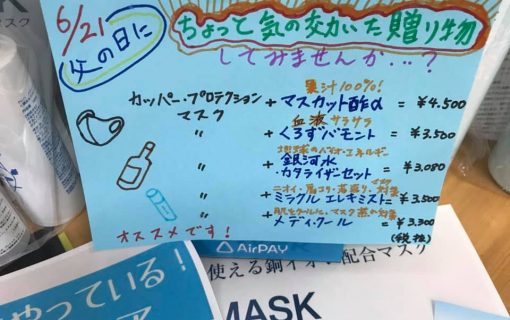 マスク
6/21
父の日に
ちょっと気の交かいた贈り物
してみませんか…?
果汁100%!
カッパー・プロテクションマスク + マスカット酢α = ¥4.500
血液サラサラ
〃 + くろずバモント = ¥3.500
地球のバイオ・エネルギー
〃 + 銀河水・カタライザーセット = ¥3,080
ニオイ・肩コリ・
〃 + ミラクル エレキミスト = ¥3,500
肌をクールに、マスク蒸れ対策
〃 + メディ・クール = ¥3,300
(税抜)
オススメです!
AirPAY
使える銅イオン配合マスク
やっている!
MASK